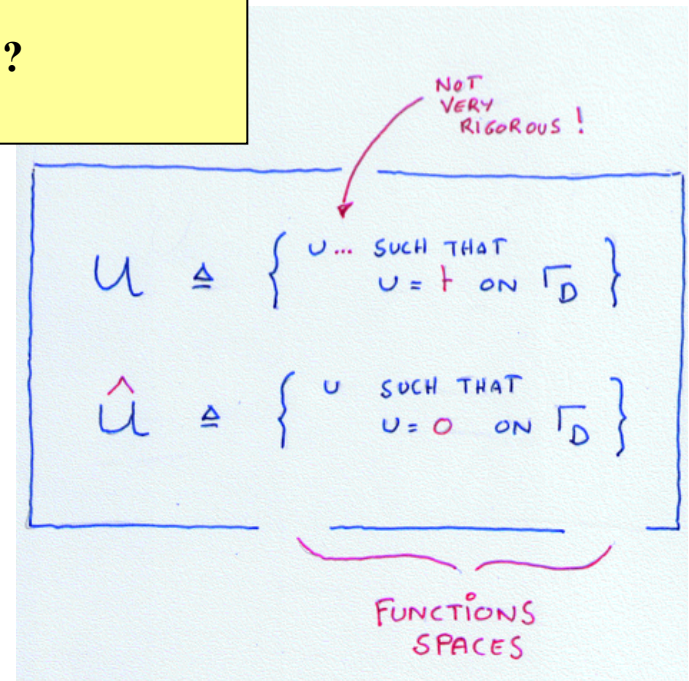 ?
NOT
VERY
RIGOROUS !
U ≜ { u... SUCH THAT
u = t ON Γ_D }
Û ≜ { u SUCH THAT
u = 0 ON Γ_D }
FUNCTIONS
SPACES